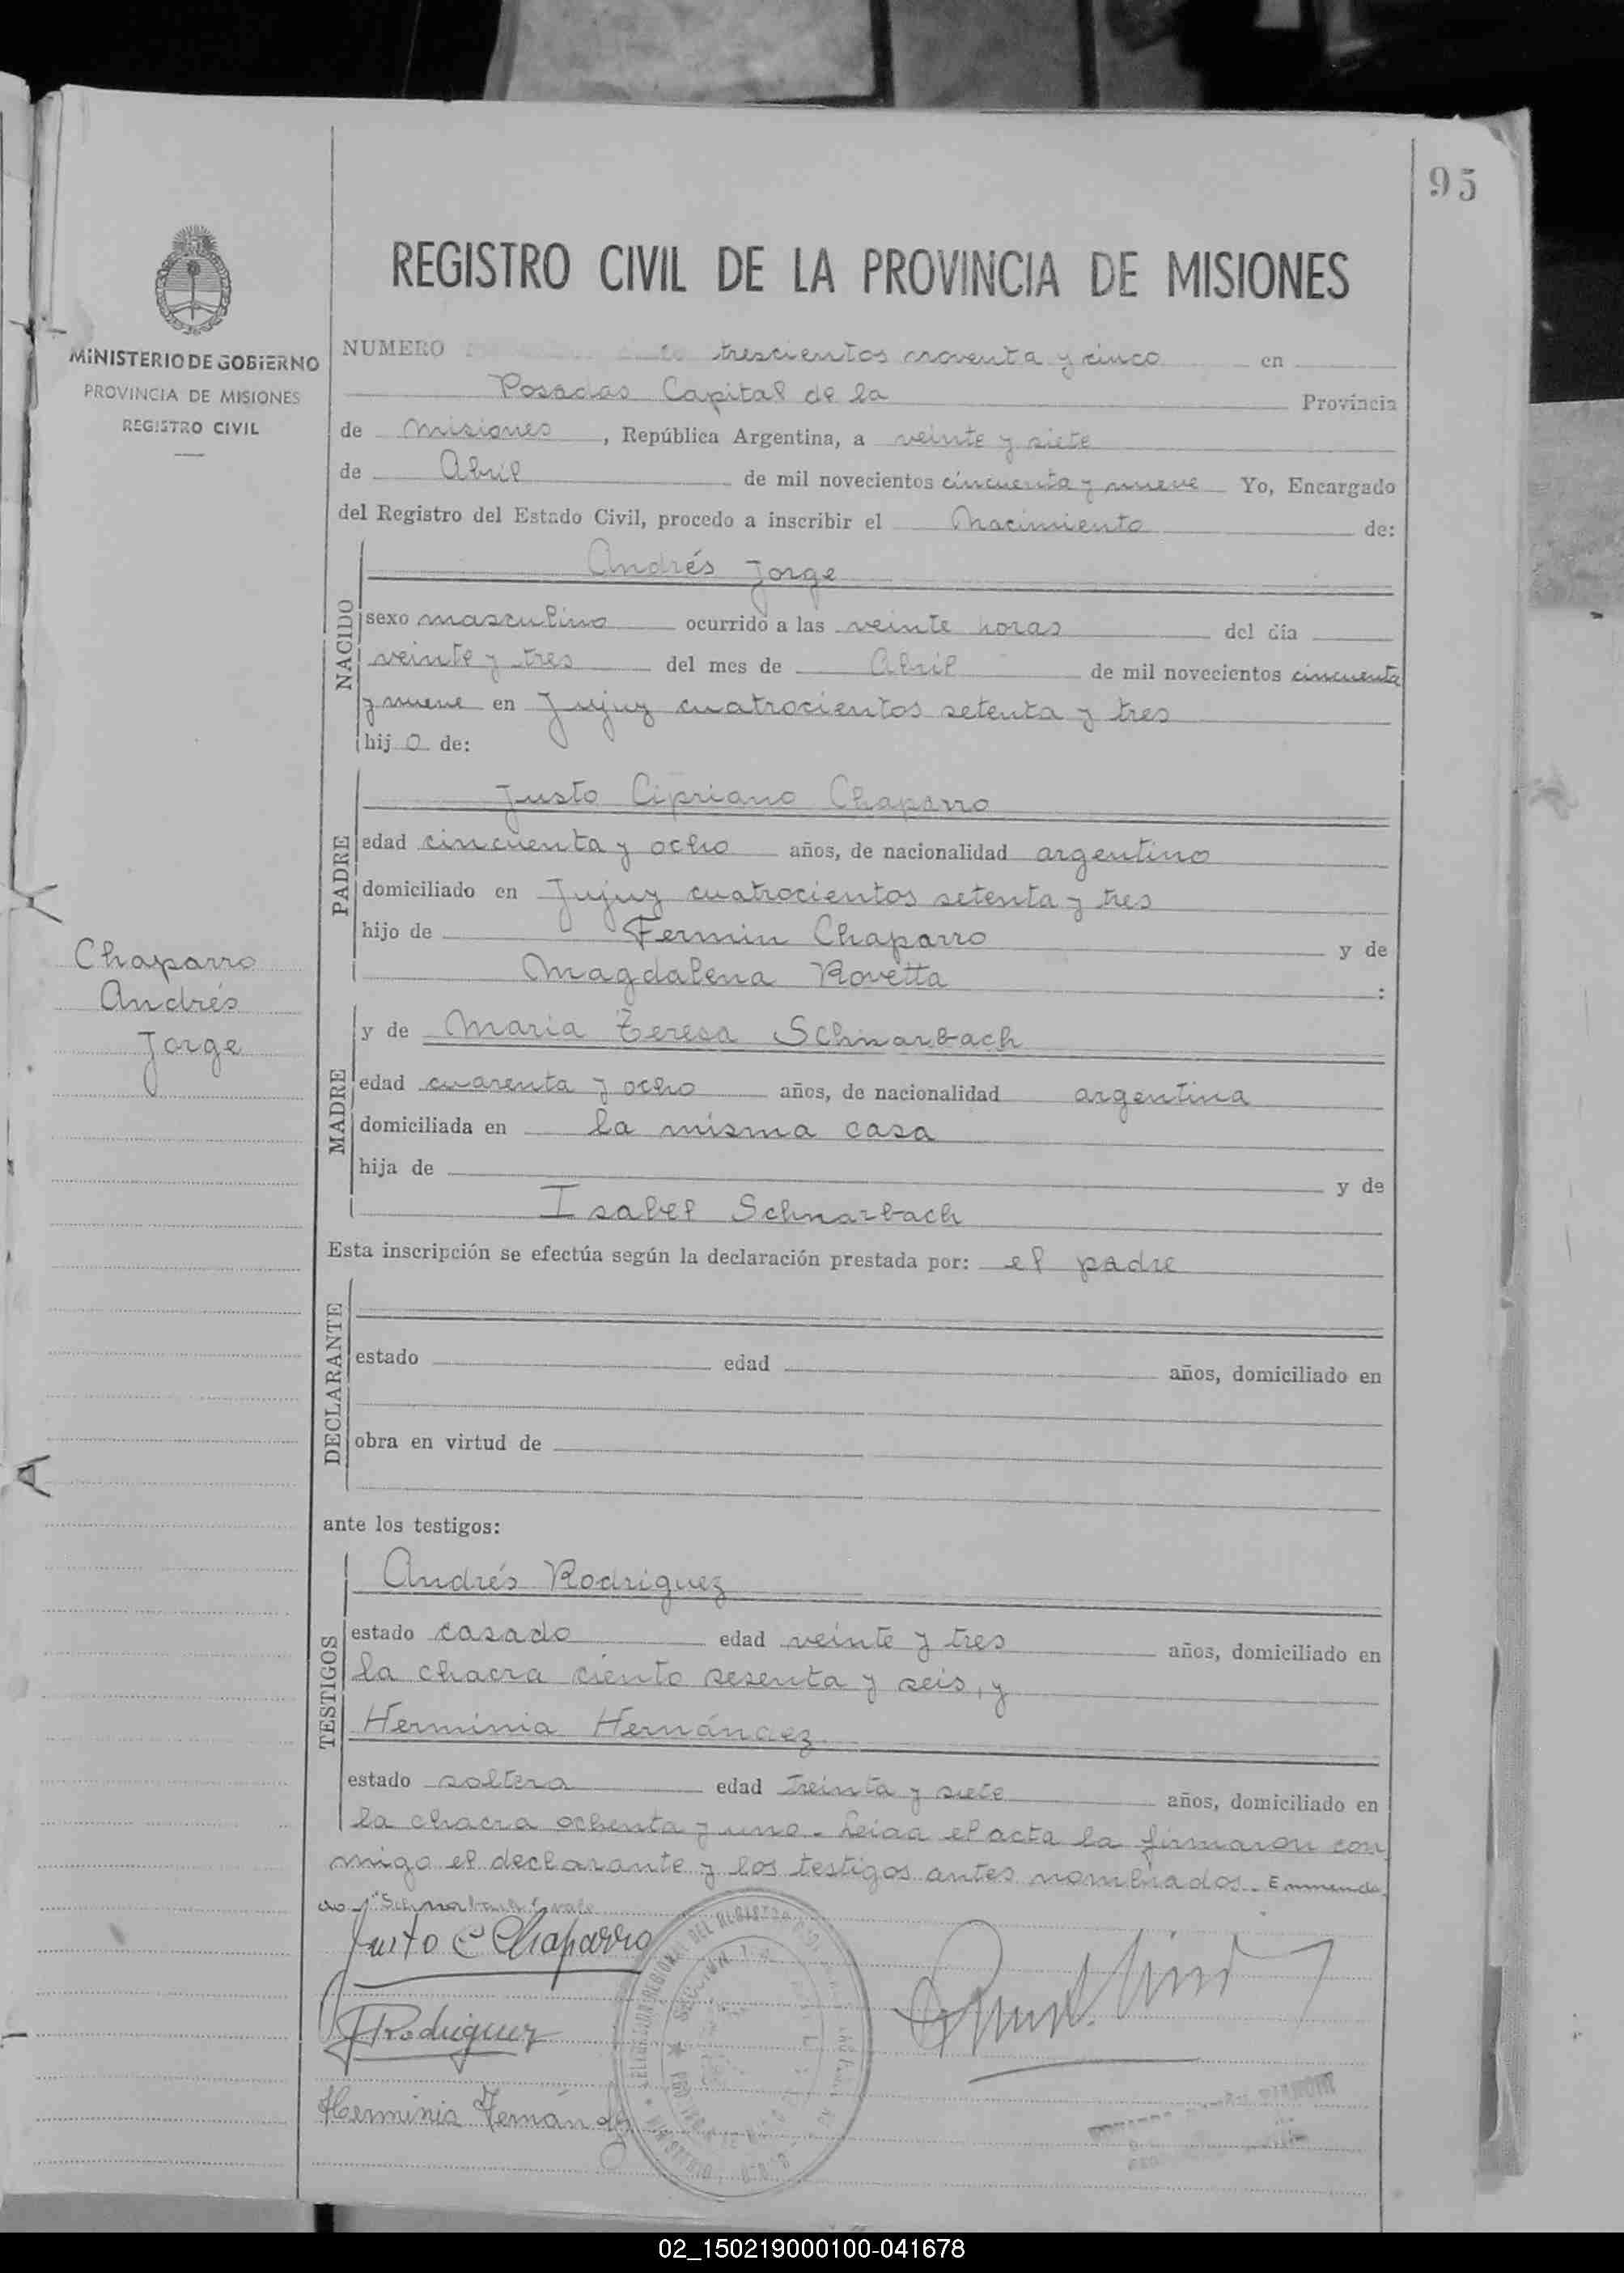 95
REGISTRO CIVIL DE LA PROVINCIA DE MISIONES
MINISTERIO DE GOBIERNO
PROVINCIA DE MISIONES
REGISTRO CIVIL
NUMERO trescientos noventa y cinco en
Posadas Capital de la Provincia
de Misiones, República Argentina, a veinte y siete
de Abril de mil novecientos cincuenta y nueve Yo, Encargado
del Registro del Estado Civil, procedo a inscribir el Nacimiento de:
NACIDO
Andrés Jorge
sexo masculino ocurrido a las veinte horas del día
veinte y tres del mes de Abril de mil novecientos cincuenta
y nueve en Jujuy cuatrocientos setenta y tres
hijo de:
PADRE
Justo Cipriano Chaparro
edad cincuenta y ocho años, de nacionalidad argentino
domiciliado en Jujuy cuatrocientos setenta y tres
hijo de Fermin Chaparro y de
Magdalena Rovetta :
Chaparro
Andrés
Jorge
MADRE
y de Maria Teresa Schnarbach
edad cuarenta y ocho años, de nacionalidad argentina
domiciliada en la misma casa
hija de y de
Isabel Schnarbach
Esta inscripción se efectúa según la declaración prestada por: el padre
DECLARANTE
estado edad años, domiciliado en
obra en virtud de
ante los testigos:
TESTIGOS
Andrés Rodriguez
estado casado edad veinte y tres años, domiciliado en
la chacra ciento sesenta y seis, y
Herminia Hernández
estado soltera edad treinta y siete años, domiciliado en
la chacra ochenta y uno. Leida el acta la firmaron con
migo el declarante y los testigos antes nombrados. Enmenda
do "Schnarbach" vale
Justo C Chaparro
Rodriguez
Herminia Hernández
DEL REGISTRO
SECCION 1
02_150219000100-041678